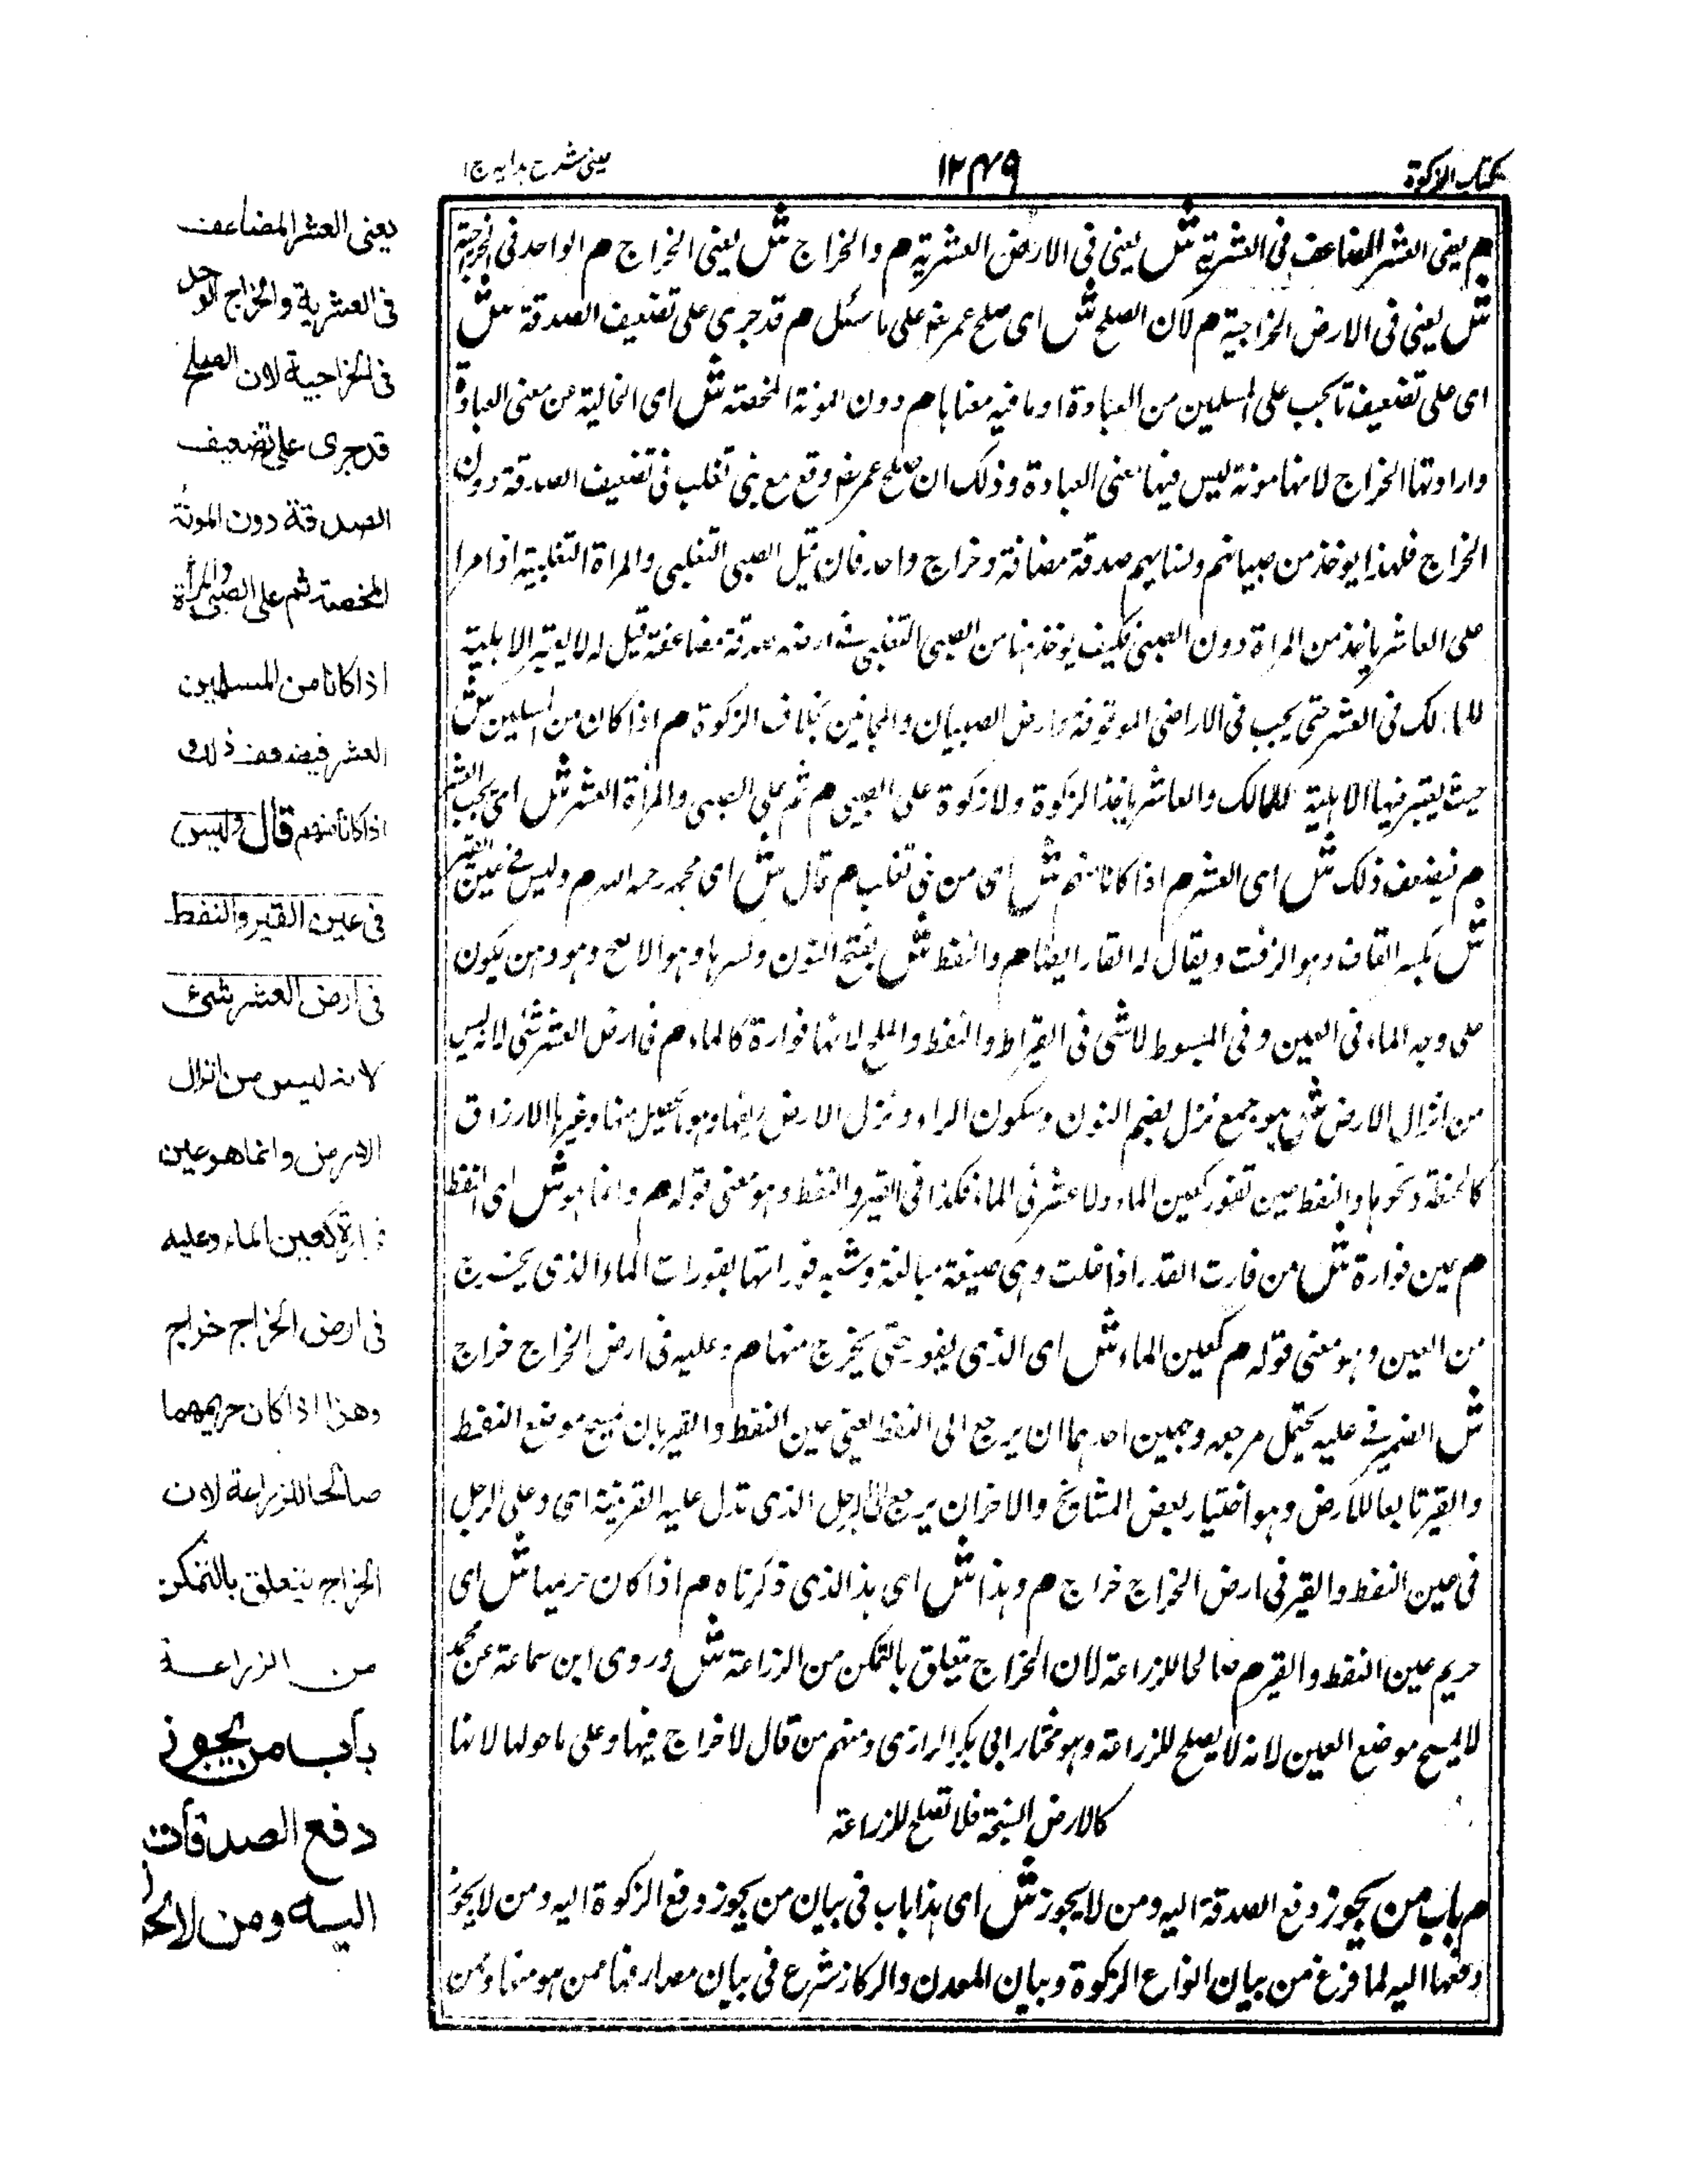 كتاب الزكوة
١٢٤٩
عينى شرح هدايه ج١
م يعنى العشر المضاعف فى العشرية ش يعنى فى الارض العشرية م والخراج ش يعنى الخراج م الواحد فى الخراجية
ش يعنى فى الارض الخراجية م لان الصلح ش اى صلح عمر رضـ على ما سئل م قد جرى على تضعيف الصدقة ش
اى على تضعيف ما يجب على المسلمين من العبادة او ما فيه معناها م دون المونة المحضة ش اى الخالية عن معنى العبادة
وارادتها الخراج لانها مونة ليس فيها معنى العبادة وذلك ان صلح عمر رضـ وقع مع بنى تغلب فى تضعيف الصدقة دون
الخراج فلهذا يوخذ من صبيانهم ونسايهم صدقة مضافة وخراج واحد فان قيل الصبى التغلبى والمراة التغلبية اذا مرا
على العاشر ياخذ من المراة دون الصبى فكيف يوخذ هنا من الصبى التغلبى فى ارضه صدقة مضاعفة قيل له لا يعتبر الاهلية
للمالك فى العشر حتى يجب فى الاراضى الموقوفة وارض الصبيان والمجانين بخلاف الزكوة م اذا كان من المسلمين ش
حيث يعتبر فيها الاهلية للمالك والعاشر ياخذ الزكوة ولا زكوة على الصبى م ثم على الصبى والمرأة العشر ش اى يجب العشر
م فيضعف ذلك ش اى العشر م اذا كانا منهم ش اى من بنى تغلب م قال ش اى محمد رحمه الله م وليس فى عين القير
ش بكسر القاف وهو الزفت ويقال له القار ايضا م والنفط ش بفتح النون وكسرها وهو الافصح وهو دهن يكون
على وجه الماء فى العين وفى المبسوط لا شى فى القير والنفط والملح لانها فوارة كالماء م فى ارض العشر شئى لانه ليس
من انزال الارض ش هو جمع نزل بضم النون وسكون الزاء ونزل الارض ريعها وهو ما يحصل منها وغيرها الارزاق
كالحنطة ونحوها والنفط عين تفور كعين الماء ولا عشر فى الماء فكذا فى القير والنفط وهو معنى قوله م وانما هو ش اى النفط
م عين فوارة ش من فارت القدر اذا غلت وهى صيغة مبالغة وشبه فوراتها بفورات الماء الذى يخرج
من العين وهو معنى قوله م كعين الماء ش اى الذى يفور حتى يخرج منها م وعليه فى ارض الخراج خراج
ش الضمير فى عليه يحتمل مرجعه وجهين احدهما ان يرجع الى النفط يعنى عين النفط والقير بان يمسح موضع النفط
والقير تابعا للارض وهو اختيار بعض المشايخ والاخر ان يرجع الى الرجل الذى تدل عليه القرينة اى وعلى الرجل
فى عين النفط والقير فى ارض الخراج خراج م وهذا ش اى هذا الذى ذكرناه م اذا كان حريمها ش اى
حريم عين النفط والقير م صالحا للزراعة لان الخراج يتعلق بالتمكن من الزراعة ش وروى ابن سماعة عن محمد
لا يمسح موضع العين لانه لا يصلح للزراعة وهو مختار ابى بكر الرازى ومنهم من قال لا خراج فيها وعلى ما حولها لانها
كالارض السبخة فلا تصلح للزراعة
م باب من يجوز دفع الصدقة اليه ومن لا يجوز ش اى هذا باب فى بيان من يجوز دفع الزكوة اليه ومن لا يجوز
دفعها اليه لما فرغ من بيان انواع الزكوة وبيان المعدن والركاز شرع فى بيان مصارفها ممن هو منها ومن
يعنى العشر المضاعف
فى العشرية والخراج الواحد
فى الخراجية لان الصلح
قد جرى على تضعيف
الصدقة دون المونة
المحضة ثم على الصبى والمرأة
اذا كانا من المسلمين
العشر فيضعف ذلك
اذا كانا منهم قال وليس
فى عين القير والنفط
فى ارض العشر شئ
لانه ليس من انزال
الارض وانما هو عين
فوارة كعين الماء وعليه
فى ارض الخراج خراج
وهذا اذا كان حريمهما
صالحا للزراعة لان
الخراج يتعلق بالتمكن
من الزراعة
باب من يجوز
دفع الصدقات
اليه ومن لا يجوز